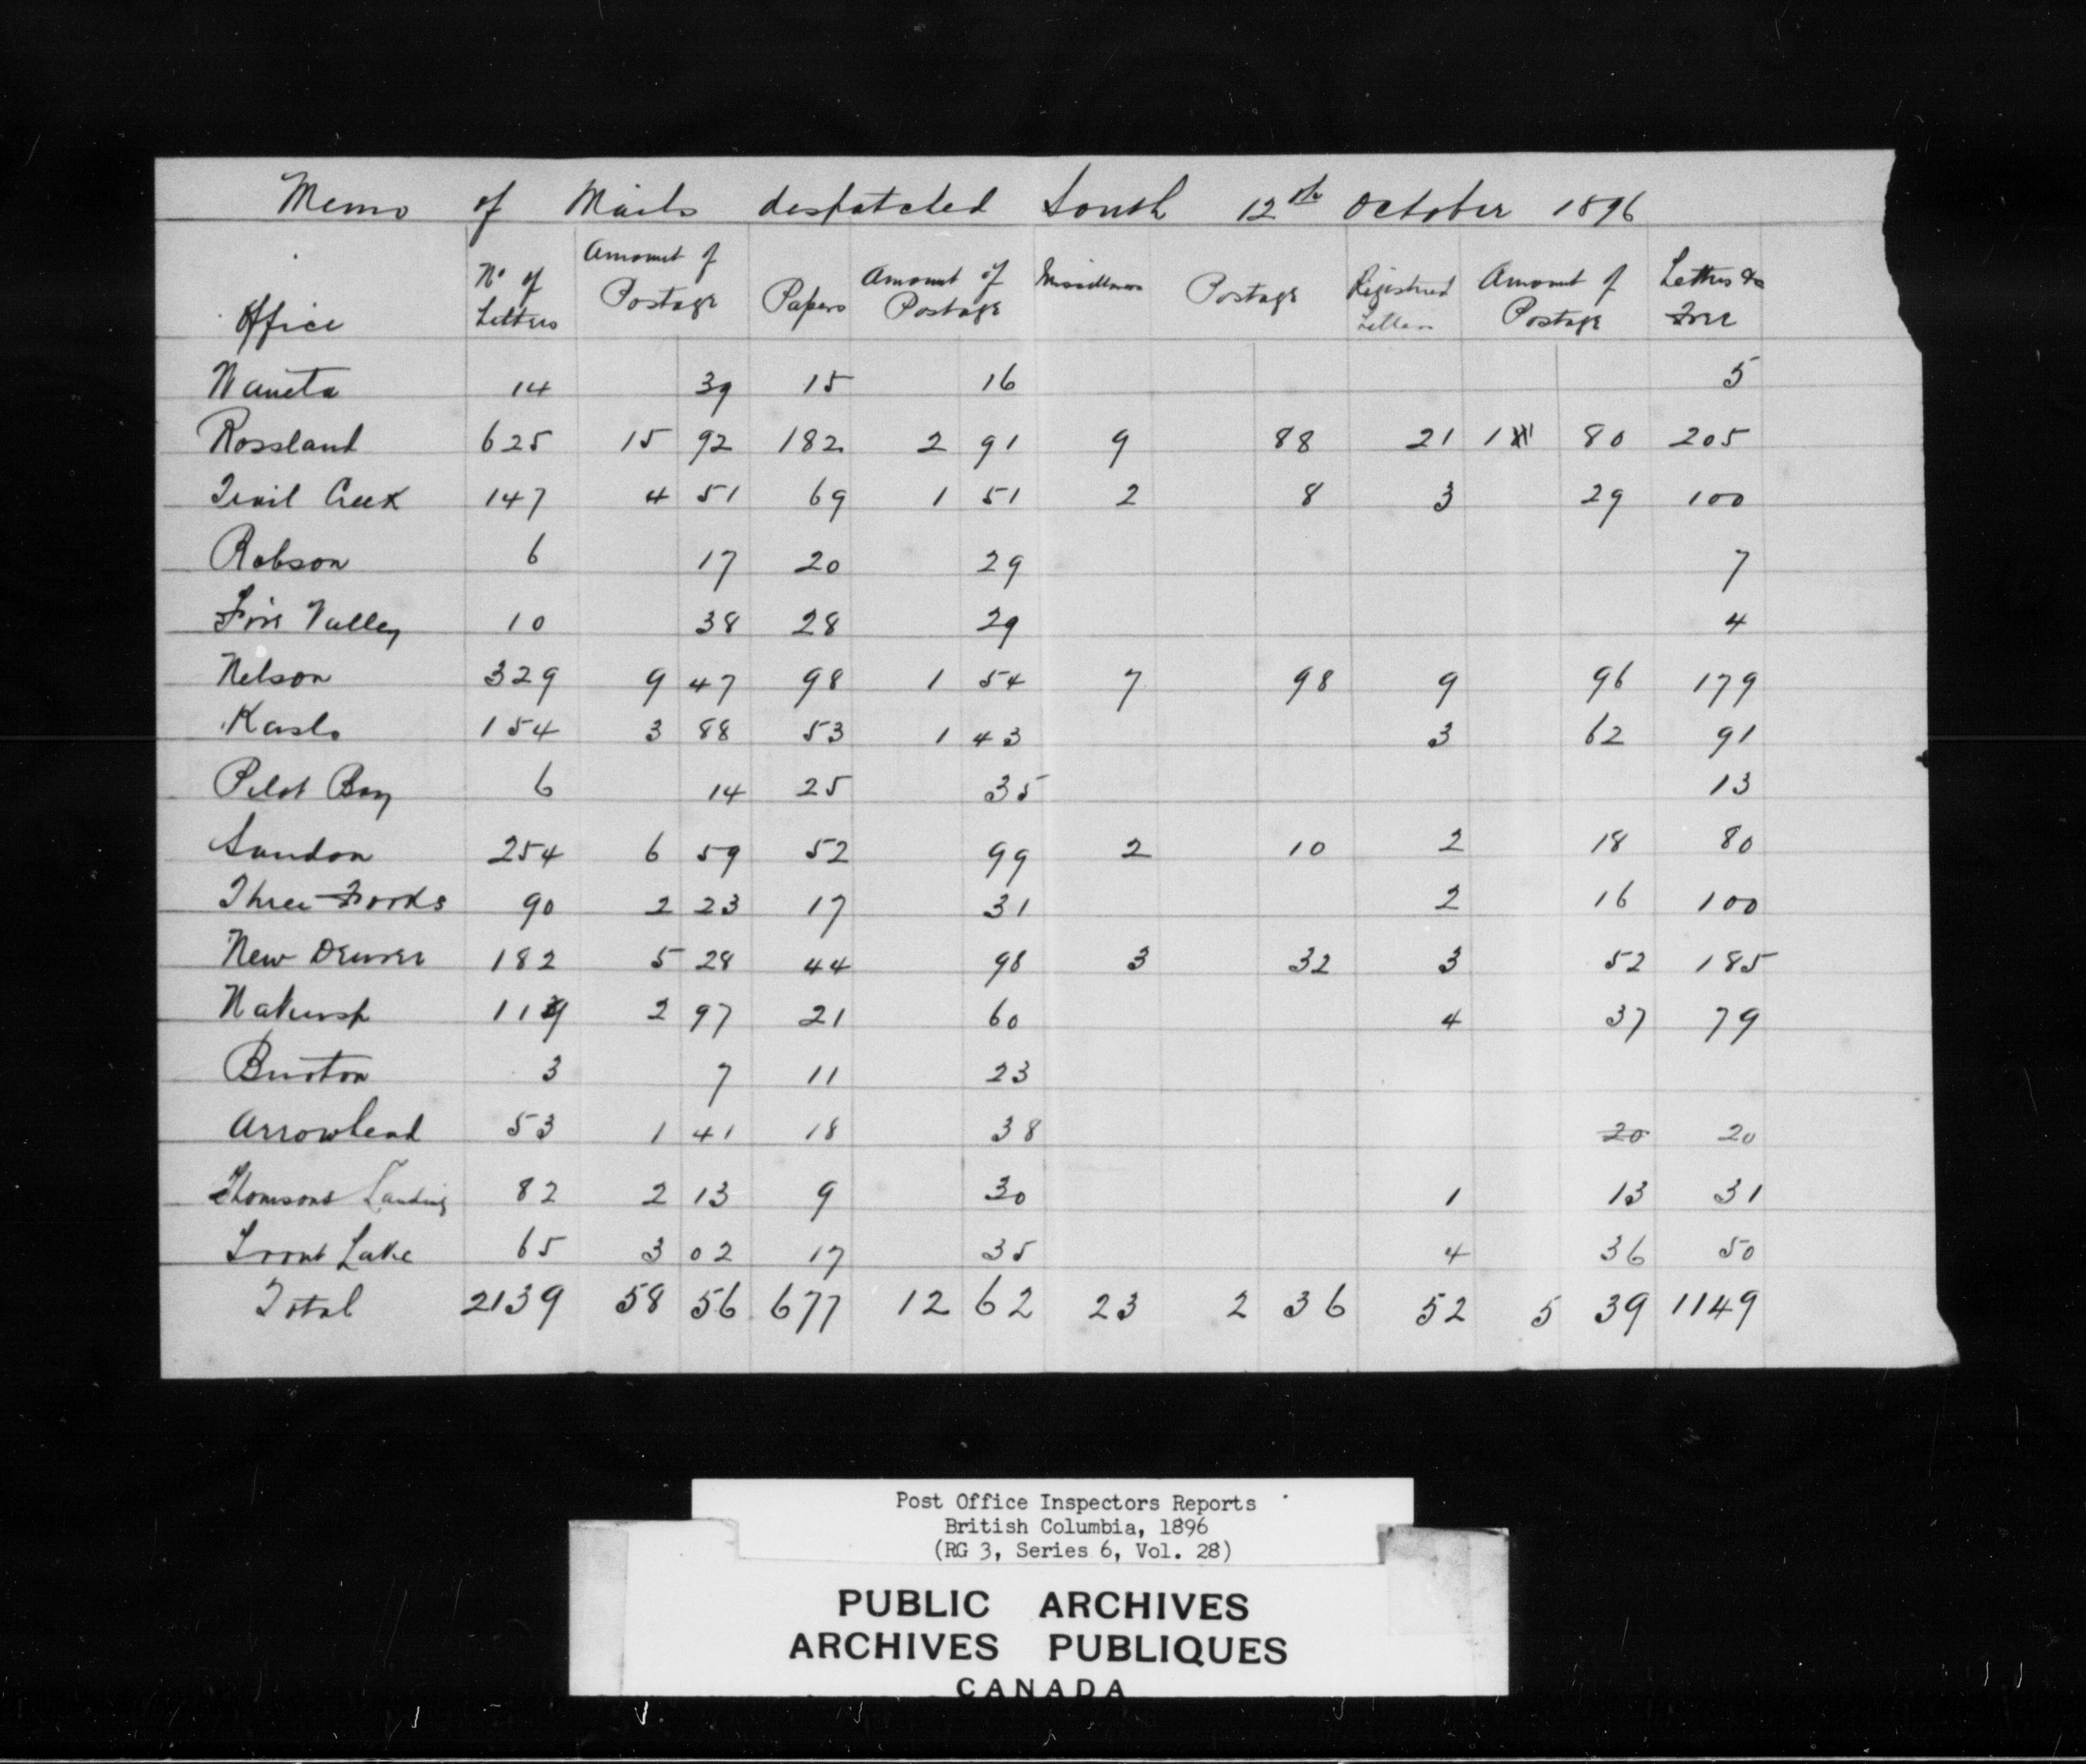 Memo of Mails despatched South 12th October 1896
Office Nº of Letters Amount of Postage Papers Amount of Postage Miscellaneous Postage Registered Letters Amount of Postage Letters &c Free
Waneta 14 39 15 16 5
Rossland 625 15 92 182 2 91 9 88 21 1 80 205
Trail Creek 147 4 51 69 1 51 2 8 3 29 100
Robson 6 17 20 29 7
Fire Valley 10 38 28 29 4
Nelson 329 9 47 98 1 54 7 98 9 96 179
Kaslo 154 3 88 53 1 43 3 62 91
Pilot Bay 6 14 25 35 13
Sandon 254 6 59 52 99 2 10 2 18 80
Three Forks 90 2 23 17 31 2 16 100
New Denver 182 5 28 44 98 3 32 3 52 185
Nakusp 119 2 97 21 60 4 37 79
Burton 3 7 11 23
Arrowhead 53 1 41 18 38 20 20
Thomsons Landing 82 2 13 9 30 1 13 31
Trout Lake 65 3 02 17 35 4 36 50
Total 2139 58 56 677 12 62 23 2 36 52 5 39 1149
Post Office Inspectors Reports
British Columbia, 1896
(RG 3, Series 6, Vol. 28)
PUBLIC ARCHIVES
ARCHIVES PUBLIQUES
CANADA